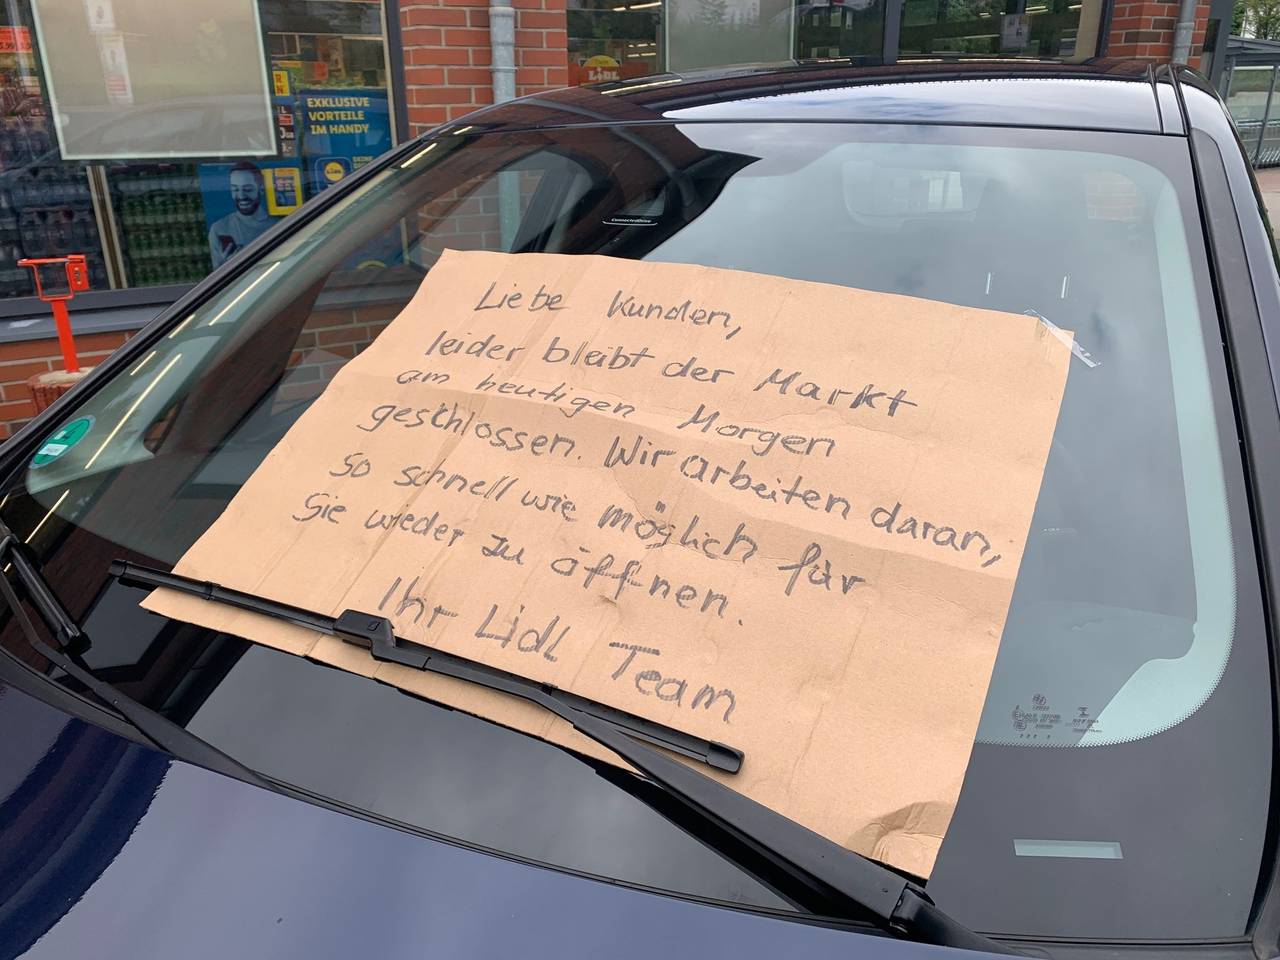 EXKLUSIVE
VORTEILE
IM HANDY
LIDL
ConnectedDrive
Liebe Kunden,
leider bleibt der Markt
am heutigen Morgen
geschlossen. Wir arbeiten daran,
so schnell wie möglich für
Sie wieder zu öffnen.
Ihr Lidl Team